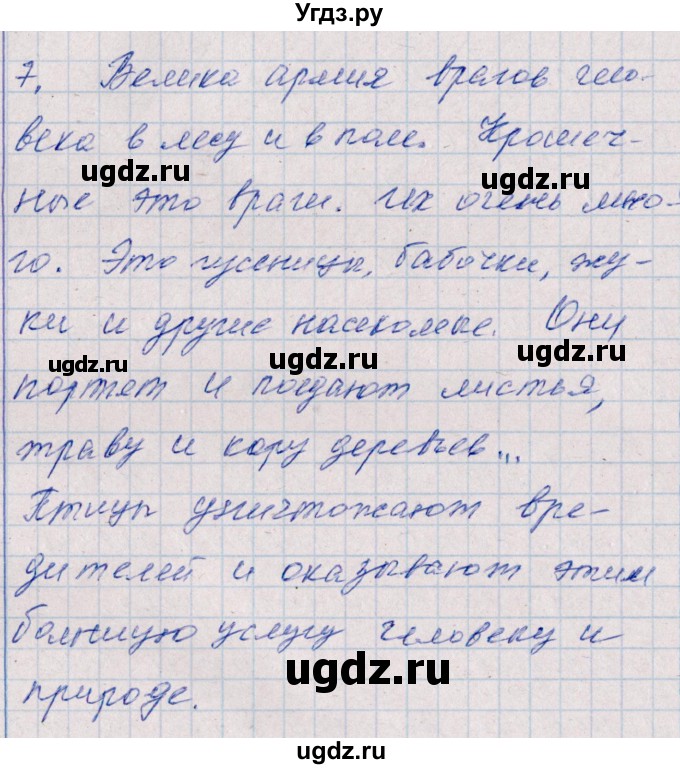 Угдз.ру
7. Велика армия врагов чело-
века в лесу и в поле. Крошеч-
ugdz.ru ugdz.ru
ные это враги. Их очень мно-
го. Это гусеницы, бабочки, жу-
ки и другие насекомые. Они
ugdz.ru ugdz.ru ugdz.ru
портят и поедают листья,
траву и кору деревьев...
Птицы уничтожают вре-
дителей и оказывают этим
большую услугу человеку и
ugdz.ru
природе.
ugdz.ru